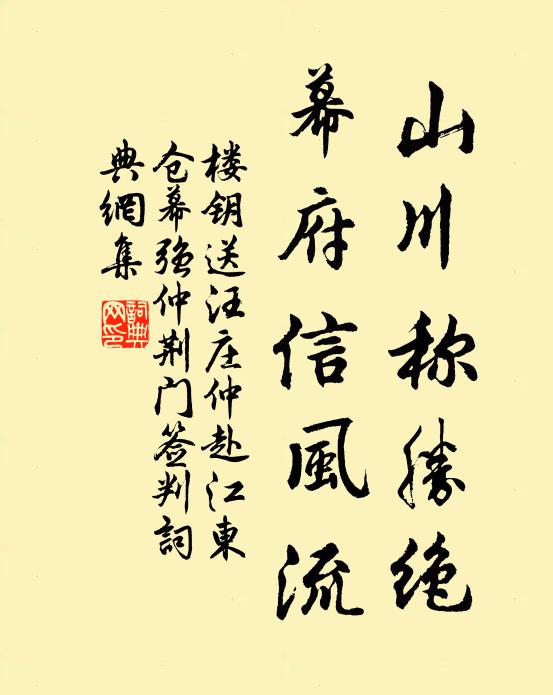 山川称勝绝
幕府信風流
楼钥送汪庄仲赴江東
仓幕强仲荆门签判詞
典網集
詞典
网印